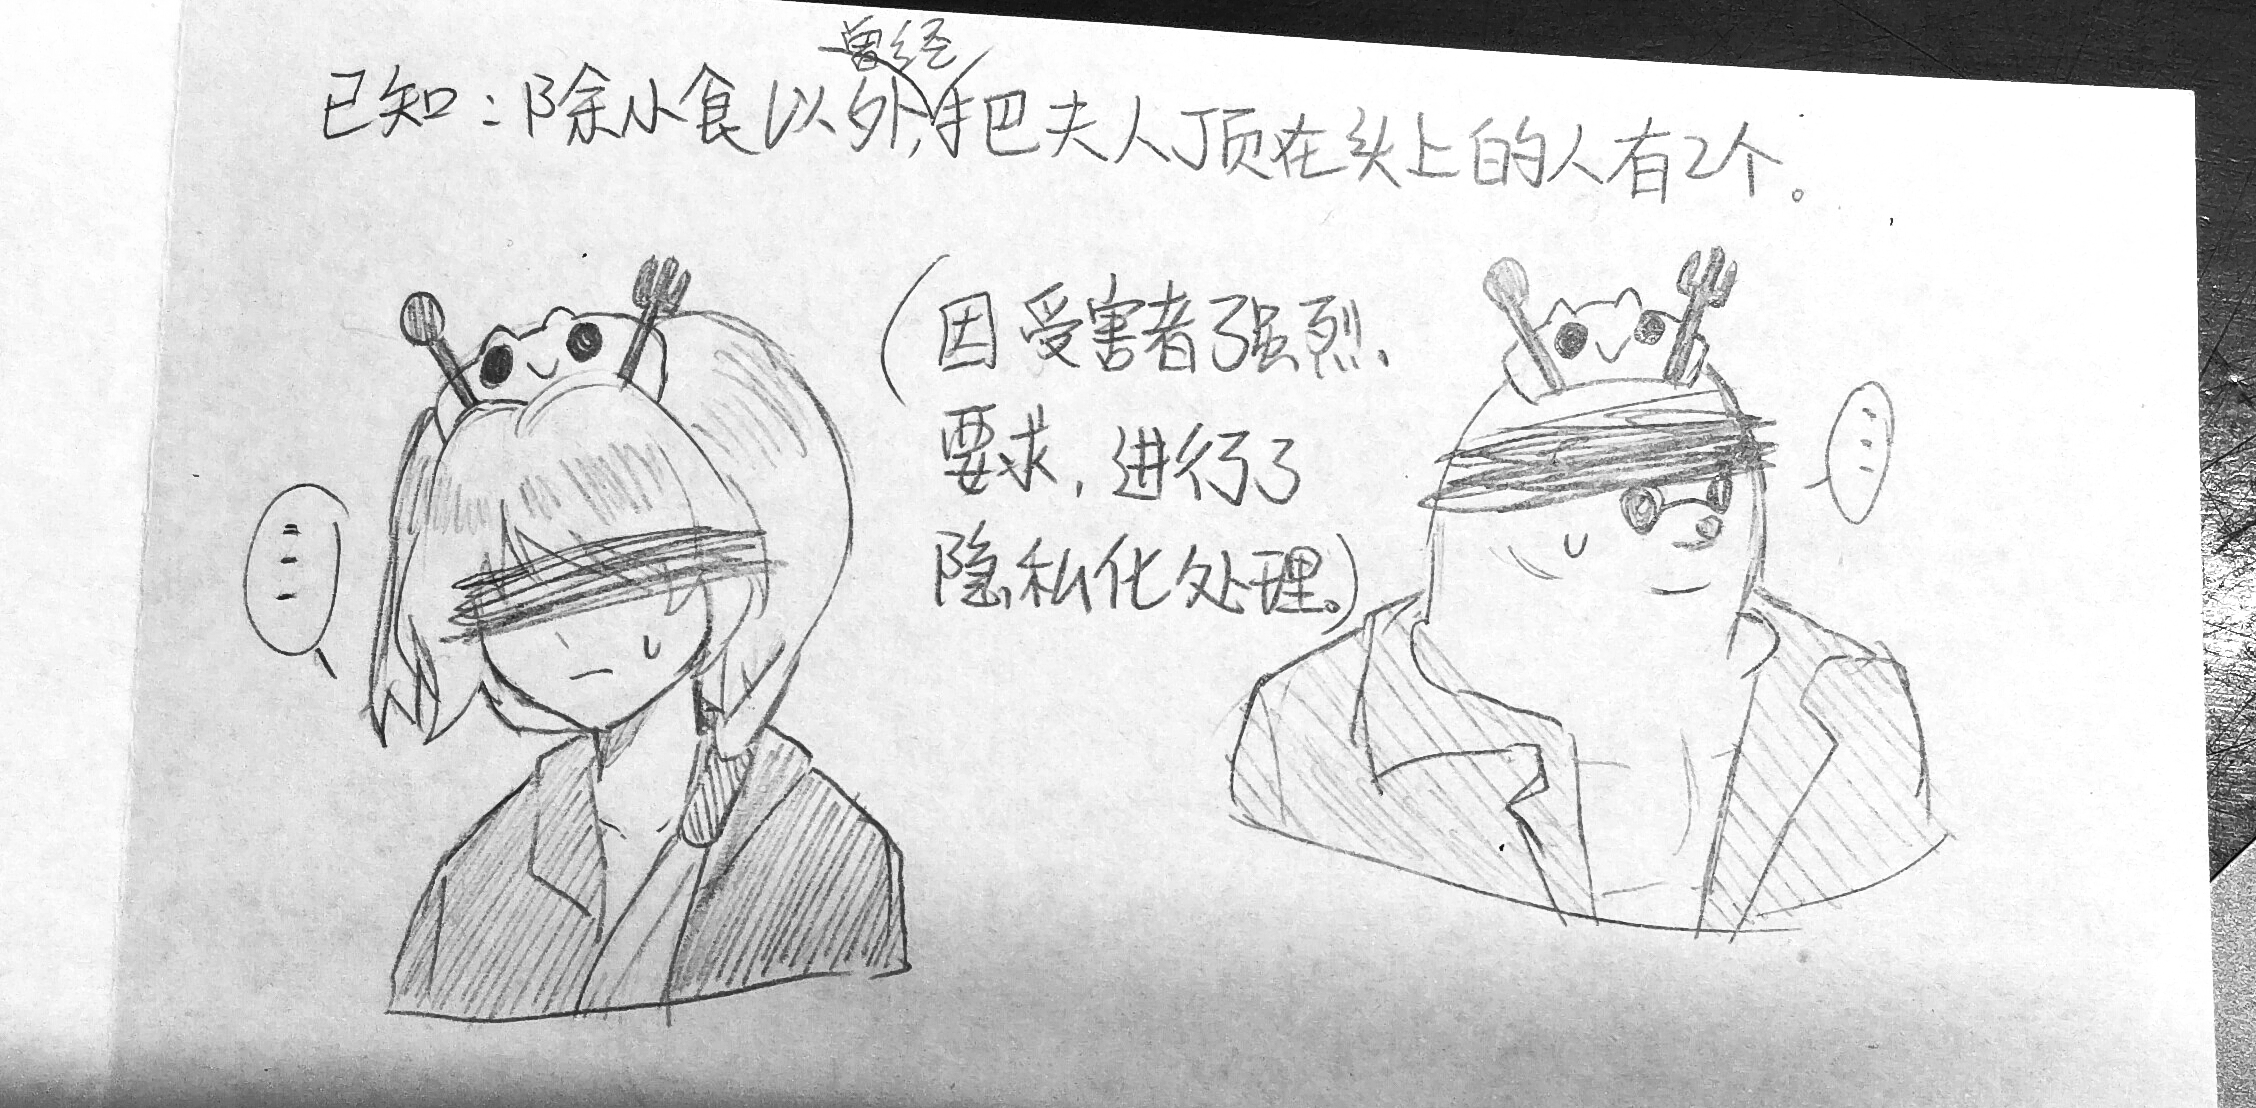 曾经
已知：除小食以外，把夫人顶在头上的人有2个。
（因受害者强烈
要求，进行了
隐私化处理。）